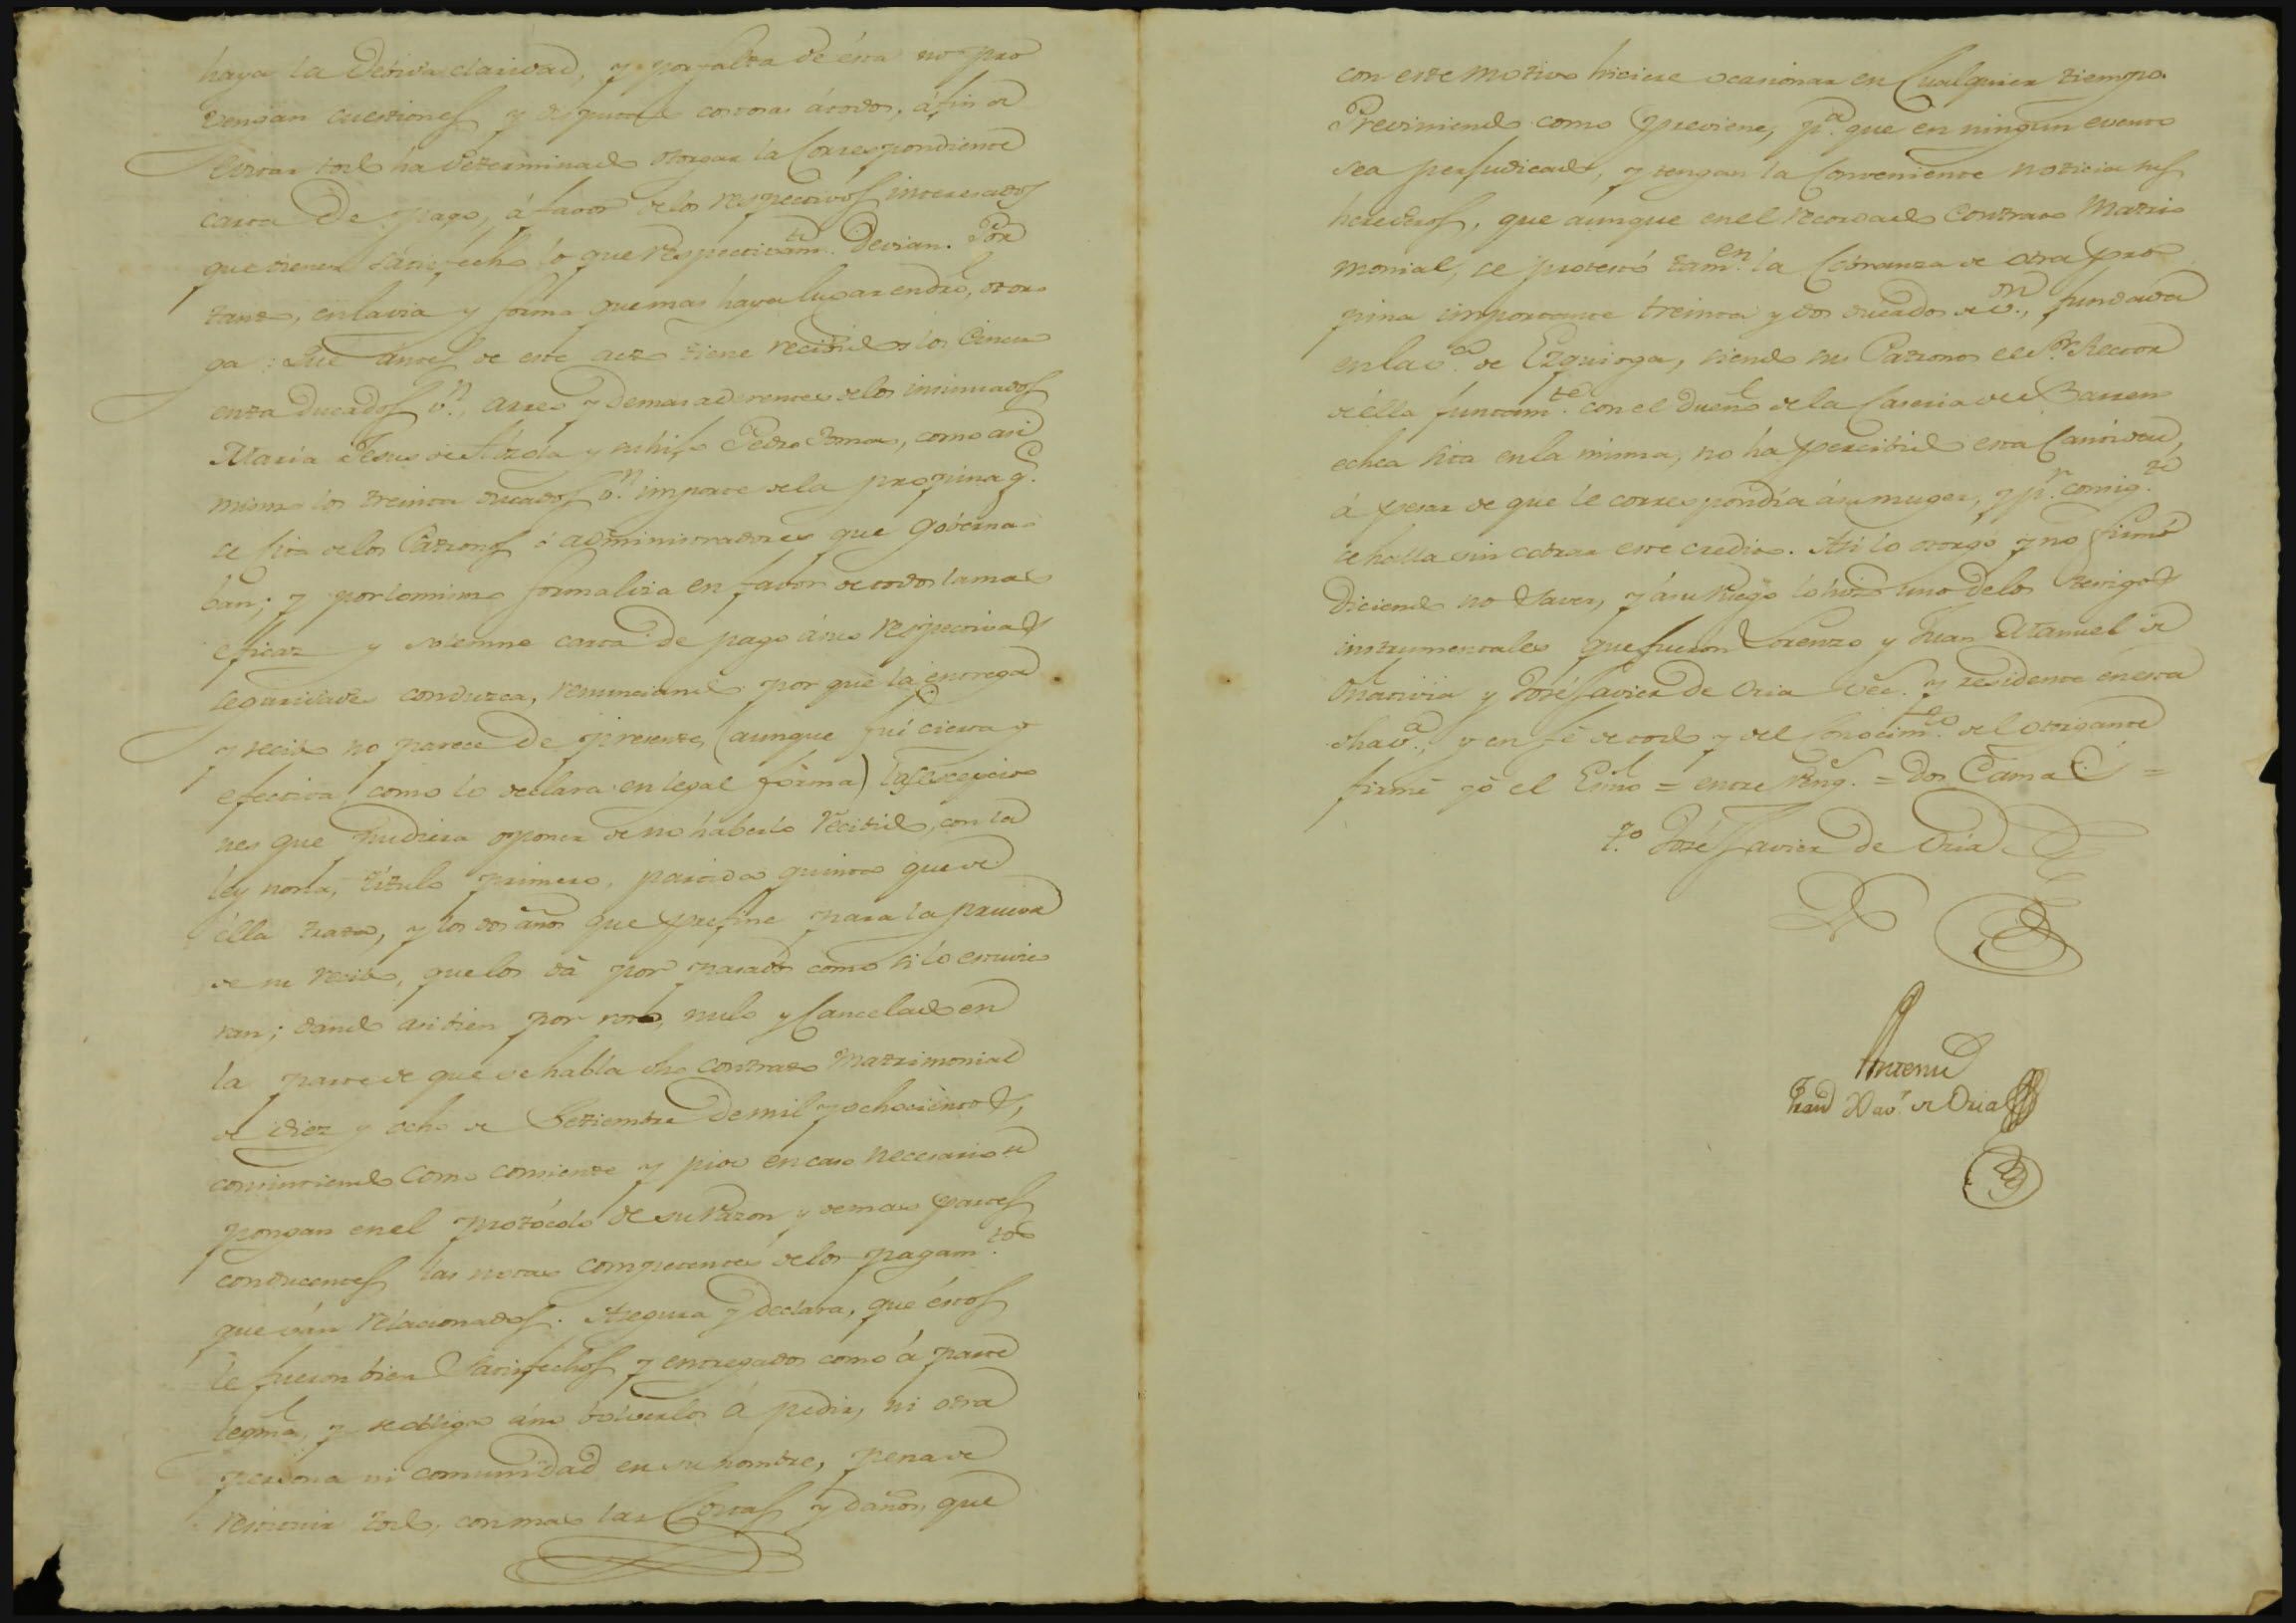 haya la devida claridad, y por falta de ésta no pro
vengan cuestiones y disputas costosas á todos, á fin de
evitar todo ha determinado otorgar la correspondiente
carta de pago, á favor de los respectivos interesados
que tienen satisfecho lo que respectivam.te devian. Por
tanto, en la via y forma que mas haya lugar en dro, otor
ga: Que antes de este acto tiene recibidos los cincu
enta ducados v.n, arreo y demas adherentes de los insinuados
Maria Jesus de Alzola y su hijo Pedro Tomas, como asi
mismo los treinta ducados v.n importe de la propina q.e
se hizo de los Patronos ó administradores que goberna
ban; y por lo mismo formaliza en favor de todos la mas
eficaz y solemne carta de pago á sus respectivas
seguridades conduzca, renunciando por que la entrega
y recibo no parece de presente, (aunque fué cierta y
efectiva, como lo declara en legal forma) las excepcio
nes que pudiera oponer de no haberlo recibido, con la
ley nona, titulo primero, partida quinta que de
élla trata, y los dos años que prefine para la prueva
de su recibo, que los dá por pasados como si lo estuvie
ran; dando asi bien por roto, nulo y cancelado en
la parte de que se habla dho contrato Matrimonial
de diez y ocho de Setiembre de mil y ochocientos,
consintiendo como consiente y pide en caso necesario se
pongan en el protócolo de su razon y demas partes
conducentes las notas competentes de los pagam.tos
que ván relacionados. Asegura y declara, que éstos
le fueron bien satisfechos y entregados como á parte
legma, y se obliga á no bolverlos á pedir, ni otra
persona ni comunidad en su nombre, pena de
restituir todo, con mas las costas y daños, que
con este motivo hiciere ocasionar en cualquier tiempo.
Previniendo como previene, p.a que en ningun evento
sea perjudicado, y tengan la conveniente noticia sus
herederos, que aunque en el recordado contrato Matri
monial, se protestó tam.en la cobranza de otra pro
pina importante treinta y dos ducados de v.on, fundada
en la v.a de Ezquioga, siendo sus Patronos el S.or Rector
de élla juntam.te con el dueño de la Caseria de Barren
echea sita en la misma, no ha percibido esta cantidad,
á pesar de que le correspondía á su muger, y p.r consig.te
se halla sin cobrar este credito. Asi lo otorgó y no firmó
diciendo no saver, y á su ruego lo hizo uno de los testigos
instrumentales que fueron Lorenzo y Juan Manuel de
Onativia y José Javier de Oria vec.s y residente en esta
dha v.a, y en fé de todo y del conocim.to del otorgante
firmé yo el Esno = entre reng.s = dos Tama =
T.o José Javier de Oria
Antemi
Fran.co Xav.r de Oria